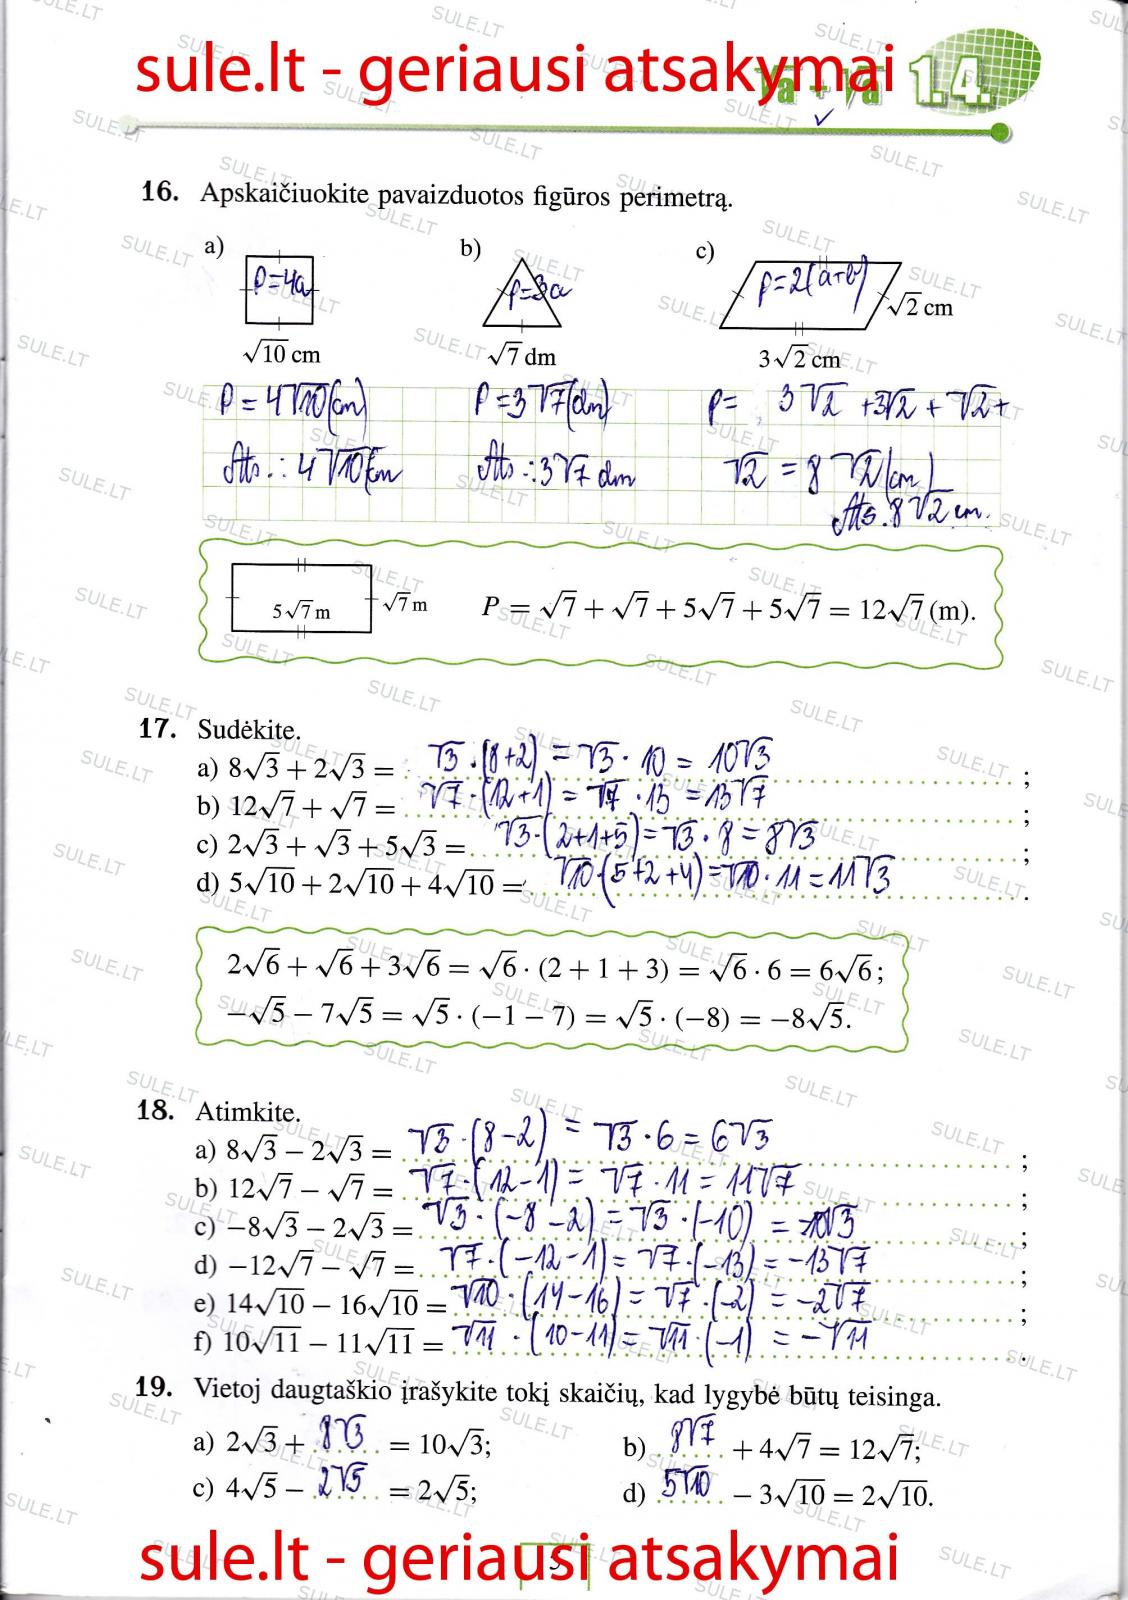 sule.lt - geriausi atsakymai
√a + √a 1.4.
16. Apskaičiuokite pavaizduotos figūros perimetrą.
a) b) c)
P=4a P=3a P=2(a+b)
√2 cm
√10 cm √7 dm 3√2 cm
P = 4√10(cm) P = 3√7(dm) P= 3√2 +3√2 + √2+
Ats.: 4√10cm Ats.:3√7 dm √2 = 8√2(cm)
Ats. 8√2 cm.
5√7 m √7 m P = √7 + √7 + 5√7 + 5√7 = 12√7 (m).
17. Sudėkite.
a) 8√3 + 2√3 = √3 · (8+2) = √3 · 10 = 10√3 ;
b) 12√7 + √7 = √7 · (12+1) = √7 · 13 = 13√7 ;
c) 2√3 + √3 + 5√3 = √3 · (2+1+5) = √3 · 8 = 8√3 ;
d) 5√10 + 2√10 + 4√10 = √10 · (5+2+4) = √10 · 11 = 11√3 .
2√6 + √6 + 3√6 = √6 · (2 + 1 + 3) = √6 · 6 = 6√6;
−√5 − 7√5 = √5 · (−1 − 7) = √5 · (−8) = −8√5.
18. Atimkite.
a) 8√3 − 2√3 = √3 · (8−2) = √3 · 6 = 6√3 ;
b) 12√7 − √7 = √7 · (12−1) = √7 · 11 = 11√7 ;
c) −8√3 − 2√3 = √3 · (−8−2) = √3 · (−10) = −10√3 ;
d) −12√7 − √7 = √7 · (−12−1) = √7 · (−13) = −13√7 ;
e) 14√10 − 16√10 = √10 · (14−16) = √7 · (−2) = −2√7 ;
f) 10√11 − 11√11 = √11 · (10−11) = √11 · (−1) = −√11 .
19. Vietoj daugtaškio įrašykite tokį skaičių, kad lygybė būtų teisinga.
a) 2√3 + 8√3 = 10√3; b) 8√7 + 4√7 = 12√7;
c) 4√5 − 2√5 = 2√5; d) 5√10 − 3√10 = 2√10.
sule.lt - geriausi atsakymai